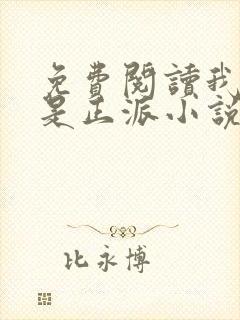 免費閱讀我
是正派小説
比永博